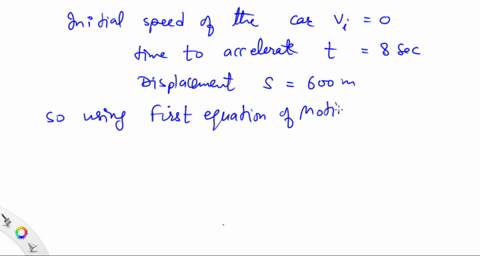 Initial speed of the car Vi = 0
time to accelerate t = 8 sec
Displacement S = 600 m
so using first equation of Moti